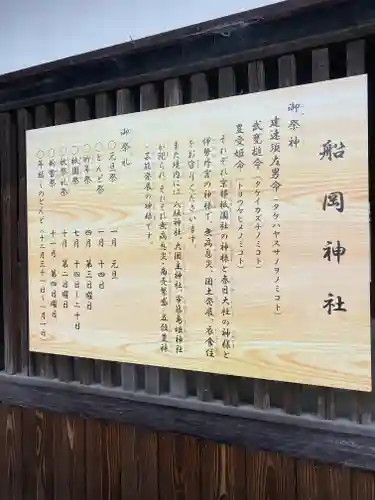 船岡神社
御祭神
建速須佐男命（タケハヤスサノヲノミコト）
武甕槌命（タケイカズチノミコト）
豊受姫命（トヨウケヒメノミコト）
それぞれ京都祇園社の神様と春日大社の神様と
伊勢外宮の神様で、無病息災、国土発展、衣食住
をお守りくださいます。
また境内には八坂神社、大国主神社、市杵島姫神社
が祀られ、それぞれ無病息災・商売繁盛・五穀豊神
・芸能発展の神様です。
御祭礼
○元旦祭 一月 元旦
○とんど祭 一月 十四日
○祈年祭 四月 第三日曜日
○祇園祭 七月 十四日～二十日
○秋祭礼 十月 第二日曜
○新嘗祭 十一月 第四日曜日
○年越しのとんど（十二月三十一日～一月一日）